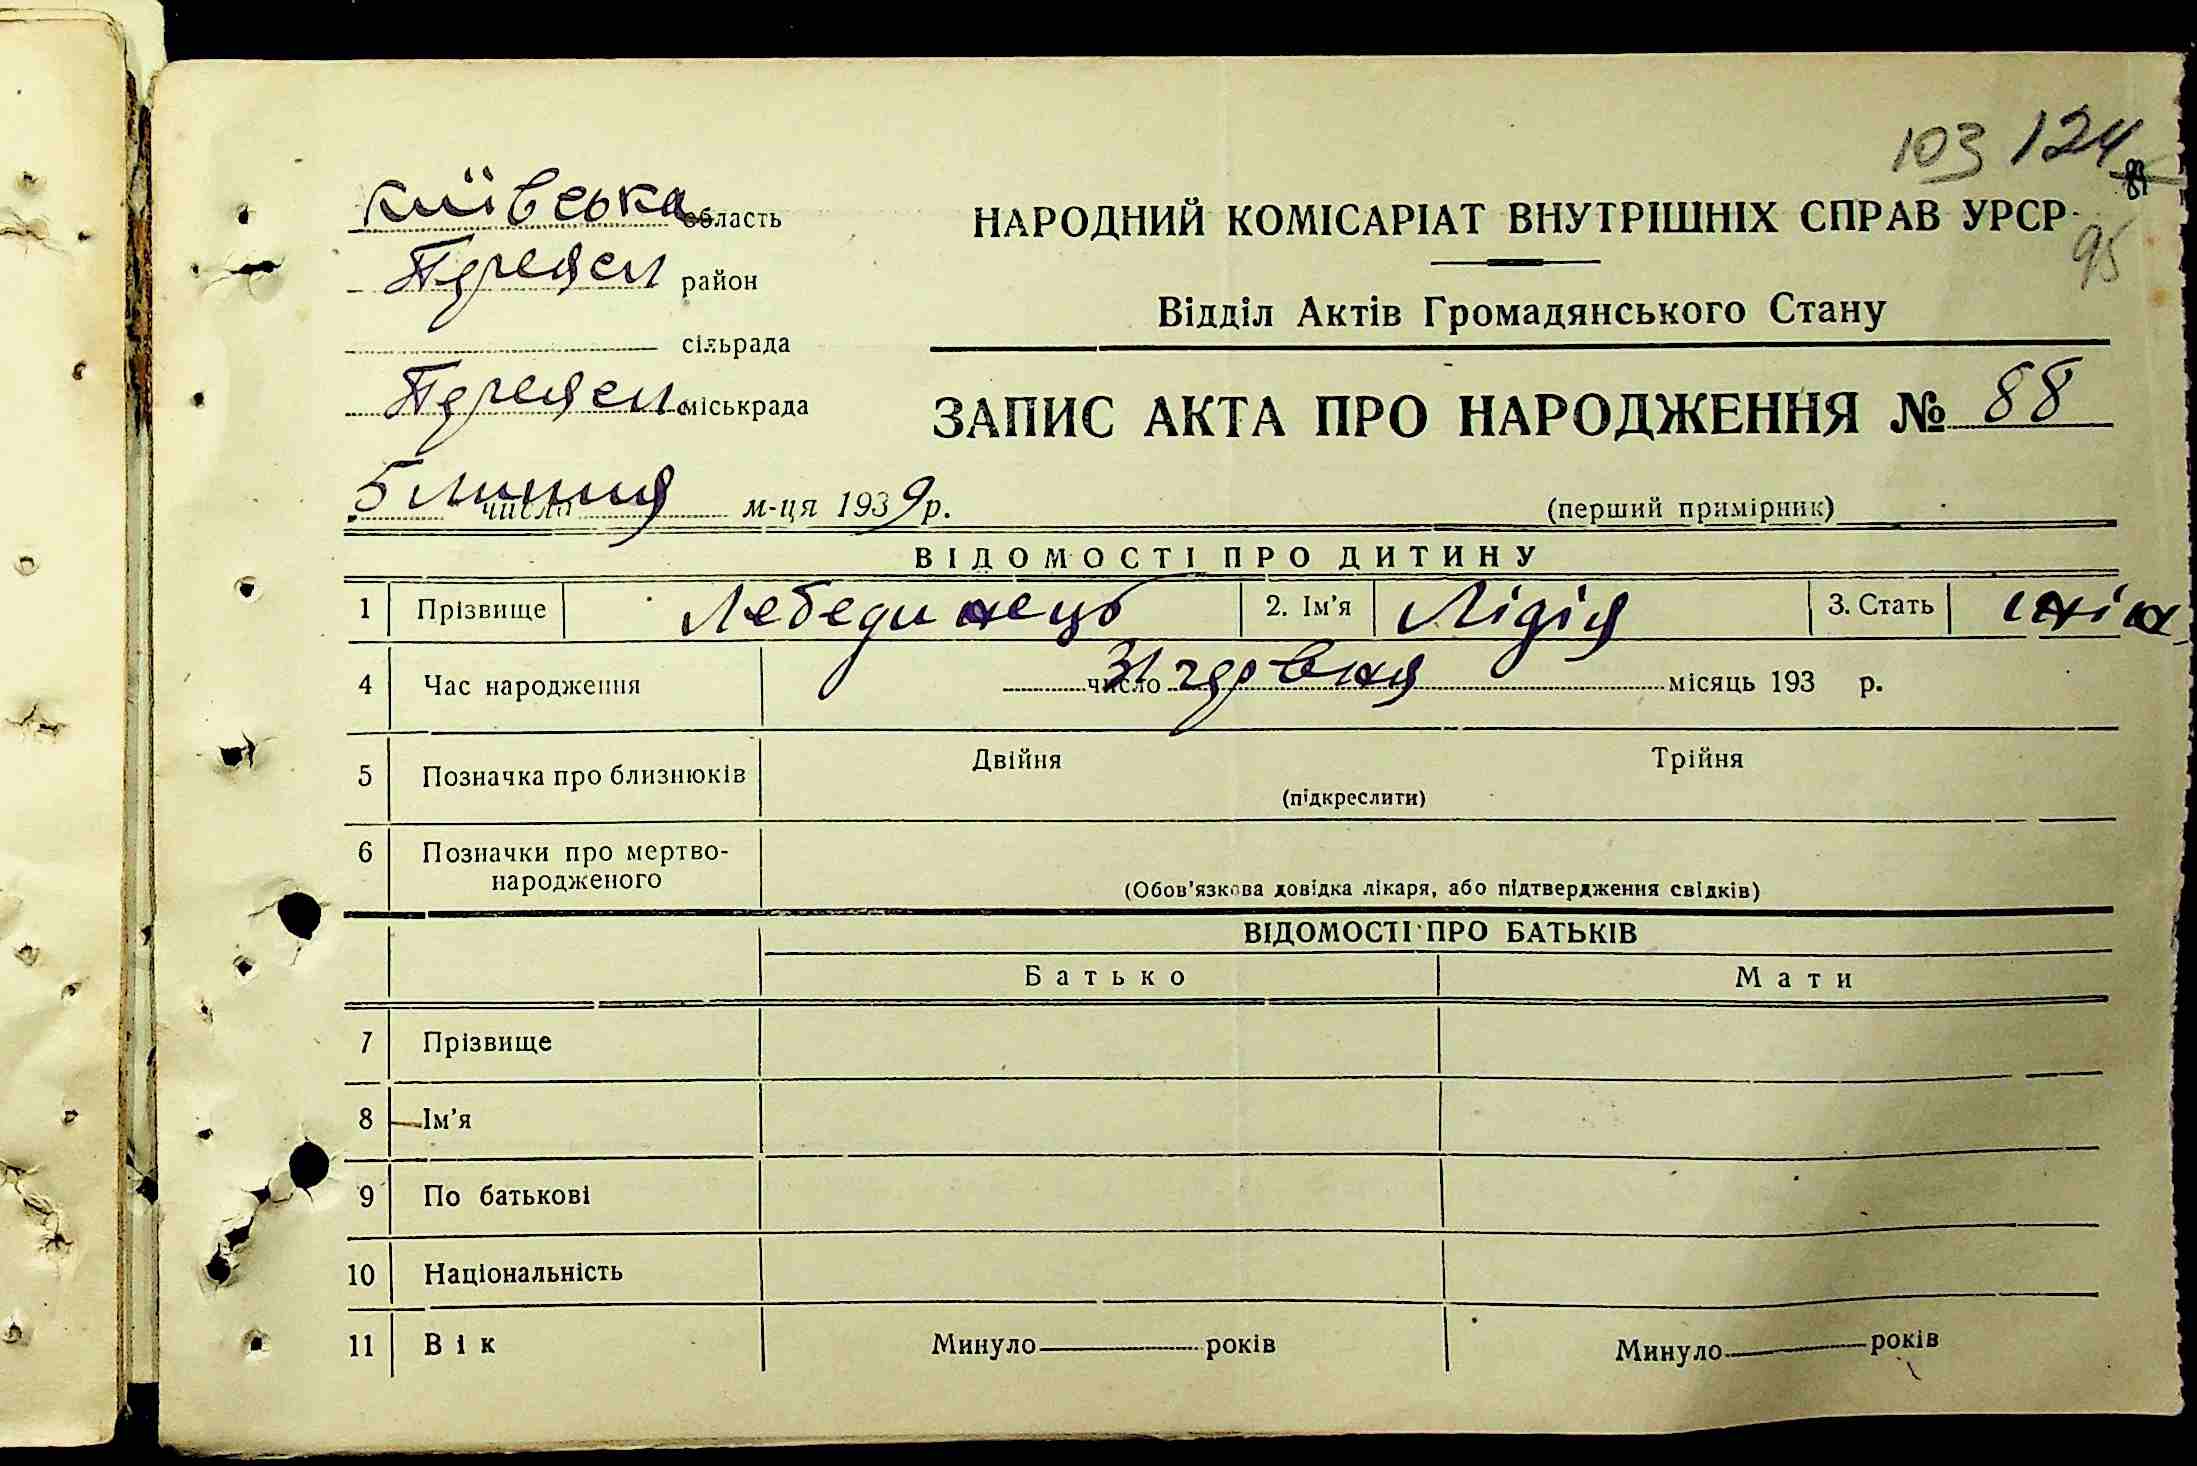 103 124 89
95
Київська область
Переясл район
сільрада
Переясл міськрада
НАРОДНИЙ КОМІСАРІАТ ВНУТРІШНІХ СПРАВ УРСР
Відділ Актів Громадянського Стану
ЗАПИС АКТА ПРО НАРОДЖЕННЯ № 88
5 число липня м-ця 1939 р.
(перший примірник)
ВІДОМОСТІ ПРО ДИТИНУ
1 Прізвище Лебединець 2. Ім'я Лідія 3. Стать жін.
4 Час народження число червня місяць 193 р.
5 Позначка про близнюків Двійня Трійня
(підкреслити)
6 Позначки про мертво-
народженого
(Обов'язкова довідка лікаря, або підтвердження свідків)
ВІДОМОСТІ ПРО БАТЬКІВ
Батько Мати
7 Прізвище
8 Ім'я
9 По батькові
10 Національність
11 Вік Минуло років Минуло років